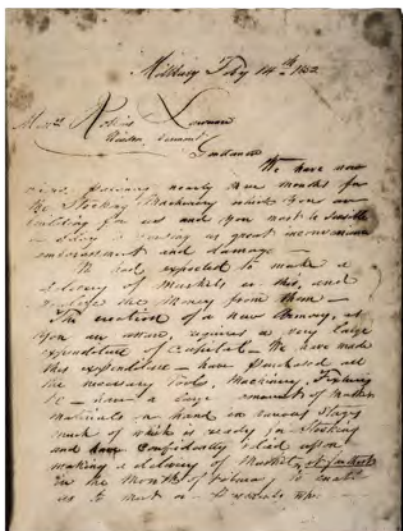 Millbury Feby 14th 1852
Messrs Robbins Lawrence
Windsor, Vermont
Gentlemen
We have now
been waiting nearly three months for
the Stocking Machinery which you are
building for us and you must be sensible
delay is causing us great inconvenience
embarrassment and damage —
We had expected to make a
delivery of Muskets in this, and
realize the Money from them —
The erection of a new Armory, as
you are aware, requires a very large
expenditure of Capital — We have made
this expenditure — have purchased all
the necessary Tools, Machinery, Fixtures
&c — have a large amount of Musket
materials on hand in various Stages
much of which is ready for Stocking
and have confidently relied upon
making a delivery of Muskets, at furthest
in the Month of February, to enable
us to meet our